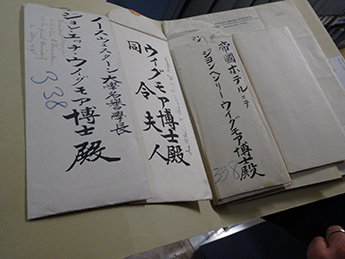 ノースウェスターン大學名譽學長
ジョン・エッチ・ウィグモア博士殿
338
ウィグモア博士殿
同令夫人
帝國ホテルニテ
ジョンヘンリーウィグモア博士殿
338